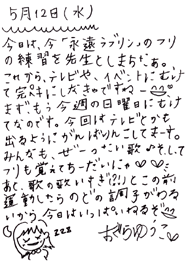 5月12日(水)
今日は、今「永遠ラブリン」のフリ
の練習を先生としまちたぁ。
これから、テレビや、イベントにむけ
て完ぺきにしたきのですねー
まずもう今週の日曜日にむけ
てなのです。今回はテレビとかも
出るようにがんばりんこしてまーす。
みんなも、ぜーったい歌♪そして
フリも覚えてちーだいにゃ♡♡
あと、歌の歌いすぎ(!?)とこの前
運動したらのどの調子がわる
いから、今日はいっぱいねるぞ
zzz おぐらゆうこ